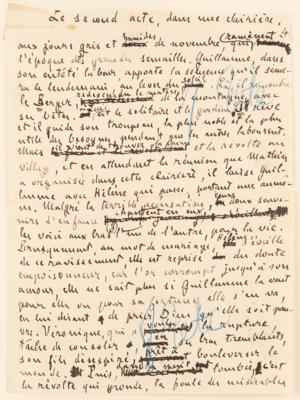 Le second acte, dans une clairière,
aux jours gris et humides de novembre, qui ramènent
l'époque des grandes semailles. Guillaume, dans
son entêté labour, apporte la semence qu'il sème-
ra le lendemain, au lever du soleil. Il rencontre
le Berger,
le solitaire et le gardien
et il guide son troupeau la plus noble et la plus
utile des besognes, pendant que les autres labourent.
Mais la révolte au
village, et en attendant la réunion que Mathieu
a organisée dans cette clairière, il laisse Guil-
laume avec Hélène qui passe, portant une aumô-
ne. Malgré la terrible accusation, leurs doux souve-
nirs d'enfance
les voici aux bras l'un de l'autre, pour la vie.
Brusquement, au mot de mariage, Hélène s'éveille
de ce ravissement, elle est reprise du doute
empoisonneur, car l'or corrompt jusqu'à son
amour, elle ne sait plus si Guillaume la veut
pour elle ou pour sa fortune, elle s'en va,
en lui disant de prier Dieu qu'elle soit pau-
vre. Véronique, qui a voulu la rupture,
tâche de consoler en bras tremblants
son fils désespéré, prêt à bouleverser le
monde. Puis, la nuit tombée, c'est
la révolte qui gronde, la foule des misérables